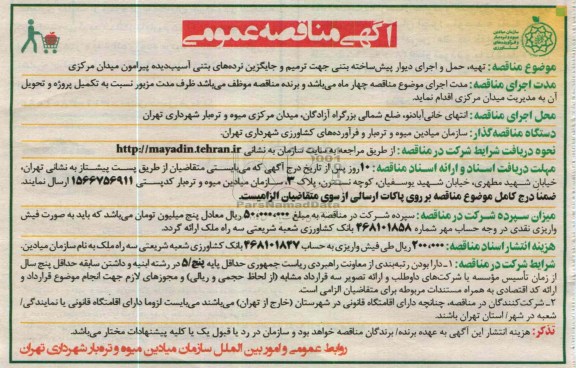 آگهی مناقصه عمومی
سازمان میادین
موضوع مناقصه: تهیه، حمل و اجرای دیوار پیش‌ساخته بتنی جهت ترمیم و جایگزین نرده‌های بتنی آسیب‌دیده پیرامون میدان مرکزی
مدت اجرای مناقصه: مدت اجرای موضوع مناقصه چهار ماه می‌باشد و برنده مناقصه موظف می‌باشد ظرف مدت مزبور نسبت به تکمیل پروژه و تحویل
آن به مدیریت میدان مرکزی اقدام نماید.
محل اجرای مناقصه: انتهای خانی‌آبادنو، ضلع شمالی بزرگراه آزادگان، میدان مرکزی میوه و تره‌بار شهرداری تهران
دستگاه مناقصه‌گذار: سازمان میادین میوه و تره‌بار و فرآورده‌های کشاورزی شهرداری تهران.
نحوه دریافت شرایط شرکت در مناقصه: از طریق مراجعه به سایت سازمان به نشانی http://mayadin.tehran.ir
مهلت دریافت اسناد و ارائه اسناد مناقصه: ۱۰روز پس از تاریخ درج آگهی که می‌بایستی متقاضیان از طریق پست پیشتاز به نشانی تهران،
خیابان شهید مطهری، خیابان شهید یوسفیان، کوچه نسترن، پلاک ۳، سازمان میادین میوه و تره‌بار کدپستی ۱۵۶۶۷۵۶۹۱۱ ارسال نمایند.
ضمنا درج کامل موضوع مناقصه بر روی پاکات ارسالی از سوی متقاضیان الزامیست.
میزان سپرده شرکت در مناقصه: سپرده شرکت در مناقصه به مبلغ ۵۰٫۰۰۰٫۰۰۰ ریال معادل پنج میلیون تومان می‌باشد که باید به صورت فیش
واریزی نقدی در وجه حساب مهر شماره ۴۶۸۱۰۱۸۵۸ بانک کشاورزی شعبه شریعتی سه راه ملک ارائه گردد.
هزینه انتشار اسناد مناقصه: ۲۰۰٫۰۰۰ ریال طی فیش واریزی به حساب ۴۶۸۱۰۱۸۲۷ بانک کشاورزی شعبه شریعتی سه راه ملک به نام سازمان میادین.
شرایط شرکت در مناقصه: ۱ـ دارا بودن رتبه‌بندی از معاونت راهبردی ریاست جمهوری حداقل پایه پنج/۵ در رشته ابنیه و داشتن سابقه حداقل پنج سال
از زمان تأسیس مؤسسه یا شرکت‌های داوطلب و ارائه تصویر سه قرارداد مشابه (از لحاظ حجمی و ریالی) و مجوزهای لازم جهت انجام موضوع قرارداد و
ارائه کد اقتصادی به همراه مستندات مربوطه برای متقاضیان الزامی است.
۲ـ شرکت‌کنندگان در مناقصه، چنانچه دارای اقامتگاه قانونی در شهرستان (خارج از تهران) می‌باشند می‌بایست لزوما دارای اقامتگاه قانونی یا نمایندگی/
شعبه در شهر/ استان تهران باشند.
تذکر: هزینه انتشار این آگهی به عهده برنده/ برندگان مناقصه خواهد بود و سازمان در رد یا قبول یک یا کلیه پیشنهادات مختار می‌باشد.
روابط عمومی و امور بین الملل سازمان میادین میوه و تره‌بار شهرداری تهران